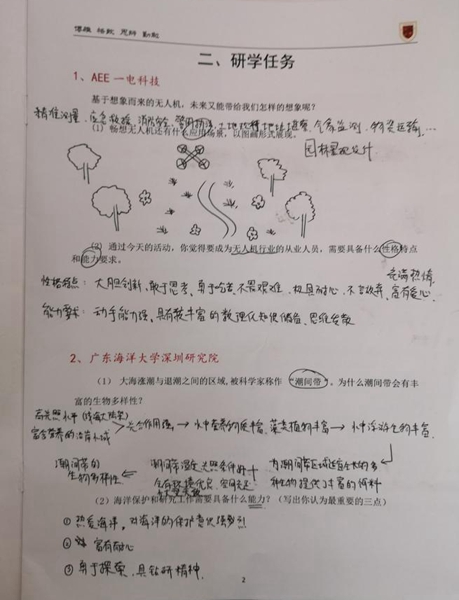 博雅 杨毅 思辨 勤勉
二、研学任务
1、AEE 一电科技
基于想象而来的无人机，未来又能带给我们怎样的想象呢？
精准测量、应急救援、消防安全、警用执法、土地检测、地址堪察、气象监测、物资运输，…
（1）畅想无人机还有什么应用场景，以图画形式展现。
园林景观设计
（2）通过今天的活动，你觉得要成为无人机行业的从业人员，需要具备什么性格特点
和能力要求。
充满热情
性格特点：大胆创新、敢于思考、勇于吃苦、不畏艰难、极具耐心、不言放弃、富有爱心、
能力要求：动手能力强、具有较丰富的数理化知识储备、思维发散
2、广东海洋大学深圳研究院
（1）大海涨潮与退潮之间的区域,被科学家称作“潮间带”。为什么潮间带会有丰
富的生物多样性？
光合作用强 → 水中营养物质丰富、藻类植物丰富 → 水中浮游生物丰富
潮间带的 潮间带
生物多样性
（2）海洋保护和研究工作需要具备什么能力？（写出你认为最重要的三点）
① 热爱海洋，对海洋的保护意识强烈
② 富有耐心
③ 勇于探索、具钻研精神．
2